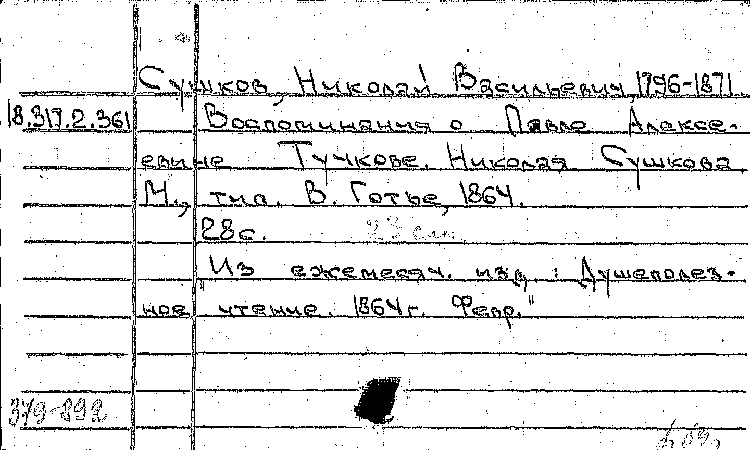 Сушков, Николай Васильевич, 1796-1871
18.317.2.361 Воспоминания о Павле Алексе-
евиче Тучкове. Николая Сушкова.
М., тип. В. Готье, 1864.
28 с. 23 см.
"Из ежемесяч. изд.: Душеполез-
ное чтение. 1864 г. Февр."
379-892